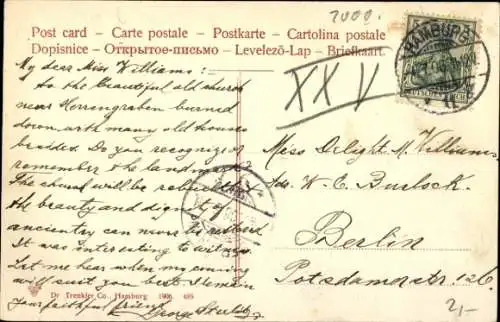 2000.
Post card - Carte postale - Postkarte - Cartolina postale
Dopisnice - Открытое-письмо - Levelező-Lap - Briefkaart.
HAMBURG
DEUTSCHES REICH
XXV
My dear Miss Williams:
So the beautiful old church
near Herrengraben burned
down with many old houses
besides. Do you recognize or
remember the landmark
The church will be rebuilt but
the beauty and dignity of
ancientry can never be restored
It was interesting to witness
Let me hear when my coming
will suit you best. I remain
Your faithful friend
George
Miss Delight M. Williams
adr. W. C. Burlock.
Berlin
Potsdamerstr. 126
Dr Trenkler Co., Hamburg 1906 495
2,-